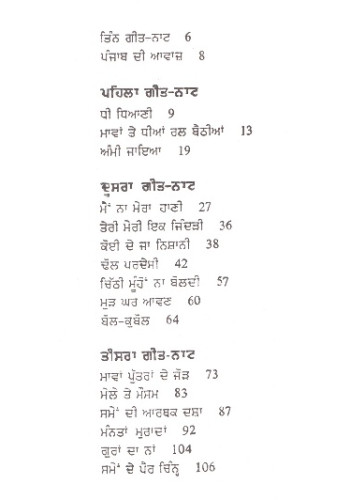 ਤਿੰਨ ਗੀਤ-ਨਾਟ 6
ਪੰਜਾਬ ਦੀ ਆਵਾਜ਼ 8
ਪਹਿਲਾ ਗੀਤ-ਨਾਟ
ਧੀ ਧਿਆਣੀ 9
ਮਾਵਾਂ ਤੇ ਧੀਆਂ ਰਲ ਬੈਠੀਆਂ 13
ਅੰਮੀ ਜਾਇਆ 19
ਦੂਸਰਾ ਗੀਤ-ਨਾਟ
ਮੈਂ ਨਾ ਮੇਰਾ ਹਾਣੀ 27
ਤੇਰੀ ਮੇਰੀ ਇਕ ਜਿੰਦੜੀ 36
ਕੋਈ ਦੇ ਜਾ ਨਿਸ਼ਾਨੀ 38
ਢੋਲ ਪਰਦੇਸੀ 42
ਚਿੱਠੀ ਮੂੰਹੋਂ ਨਾ ਬੋਲਦੀ 57
ਮੁੜ ਘਰ ਆਵਣ 60
ਬੋਲ-ਕੁਬੋਲ 64
ਤੀਸਰਾ ਗੀਤ-ਨਾਟ
ਮਾਵਾਂ ਪੁੱਤਰਾਂ ਦੇ ਜੋੜ 73
ਮੇਲੇ ਤੇ ਮੌਸਮ 83
ਸਮੇਂ ਦੀ ਆਰਥਕ ਦਸ਼ਾ 87
ਮੰਨਤਾਂ ਮੁਰਾਦਾਂ 92
ਗੁਰਾਂ ਦਾ ਨਾਂ 104
ਸਮੇਂ ਦੇ ਪੈਰ ਚਿੰਨ੍ਹ 106